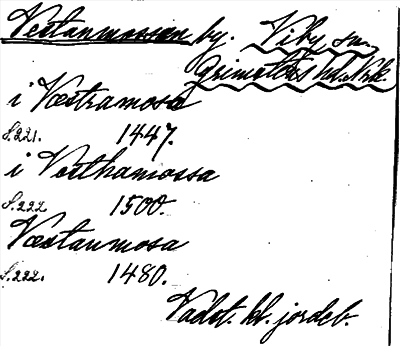 Vestanmossen by. Viby sn.
Grimstens hd. Nrk.
i Væstramosa
S. 221. 1447.
i Vesthamossa
S. 222 1500.
Væstanmosa
S. 222. 1480.
Vadst. kl. jordeb.